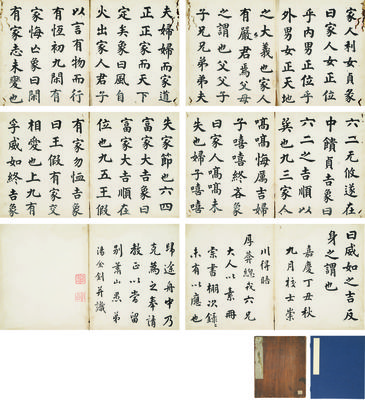 家人利女貞彖
曰家人女正位
乎內男正位乎
外男女正天地
之大義也家人
有嚴君焉父母
之謂也父父子
子兄兄弟弟夫
夫婦婦而家道
正正家而天下
定矣象曰風自
火出家人君子
以言有物而行
有恒初九閑有
家悔亡象曰閑
有家志未變也
六二无攸遂在
中饋貞吉象曰
六二之吉順以
巽也九三家人
嗃嗃悔厲吉婦
子嘻嘻終吝象
曰家人嗃嗃未
失也婦子嘻嘻
失家節也六四
富家大吉象曰
富家大吉順在
位也九五王假
有家勿恤吉象
曰王假有家交
相愛也上九有
孚威如終吉象
曰威如之吉反
身之謂也
嘉慶丁丑秋
九月校士崇
川得晤
厚葊總戎六兄
大人以素冊
索書棚次錄
未有以應也
歸途舟中乃
克為之奉請
教正以當留
別蕭山愚弟
湯金釗并識